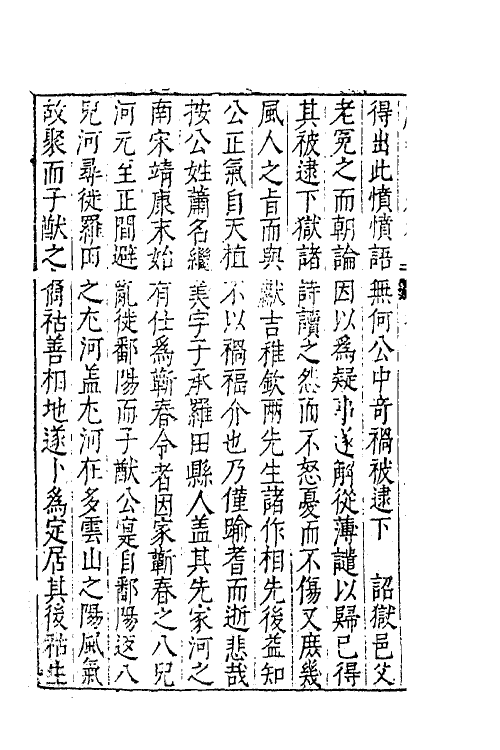 得出此憤憤語無何公中奇禍被逮下　詔獄邑父
老冤之而朝論因以為疑事遂解從薄譴以歸已得
其被逮下獄諸詩讀之怨而不怒憂而不傷又庶幾
風人之旨而與獻吉稚欽兩先生諸作相先後益知
公正氣自天植不以禍福介也乃僅踰耆而逝悲哉
按公姓蕭名繼美字子承羅田縣人蓋其先家河之
南宋靖康末始有仕為蘄春令者因家蘄春之八兒
河元至正間避亂徙鄱陽而子猷公寔自鄱陽返八
兒河尋徙羅田之尢河盖尢河在多雲山之陽風氣
故聚而子猷之祜善相地遂卜為定居其後祜生